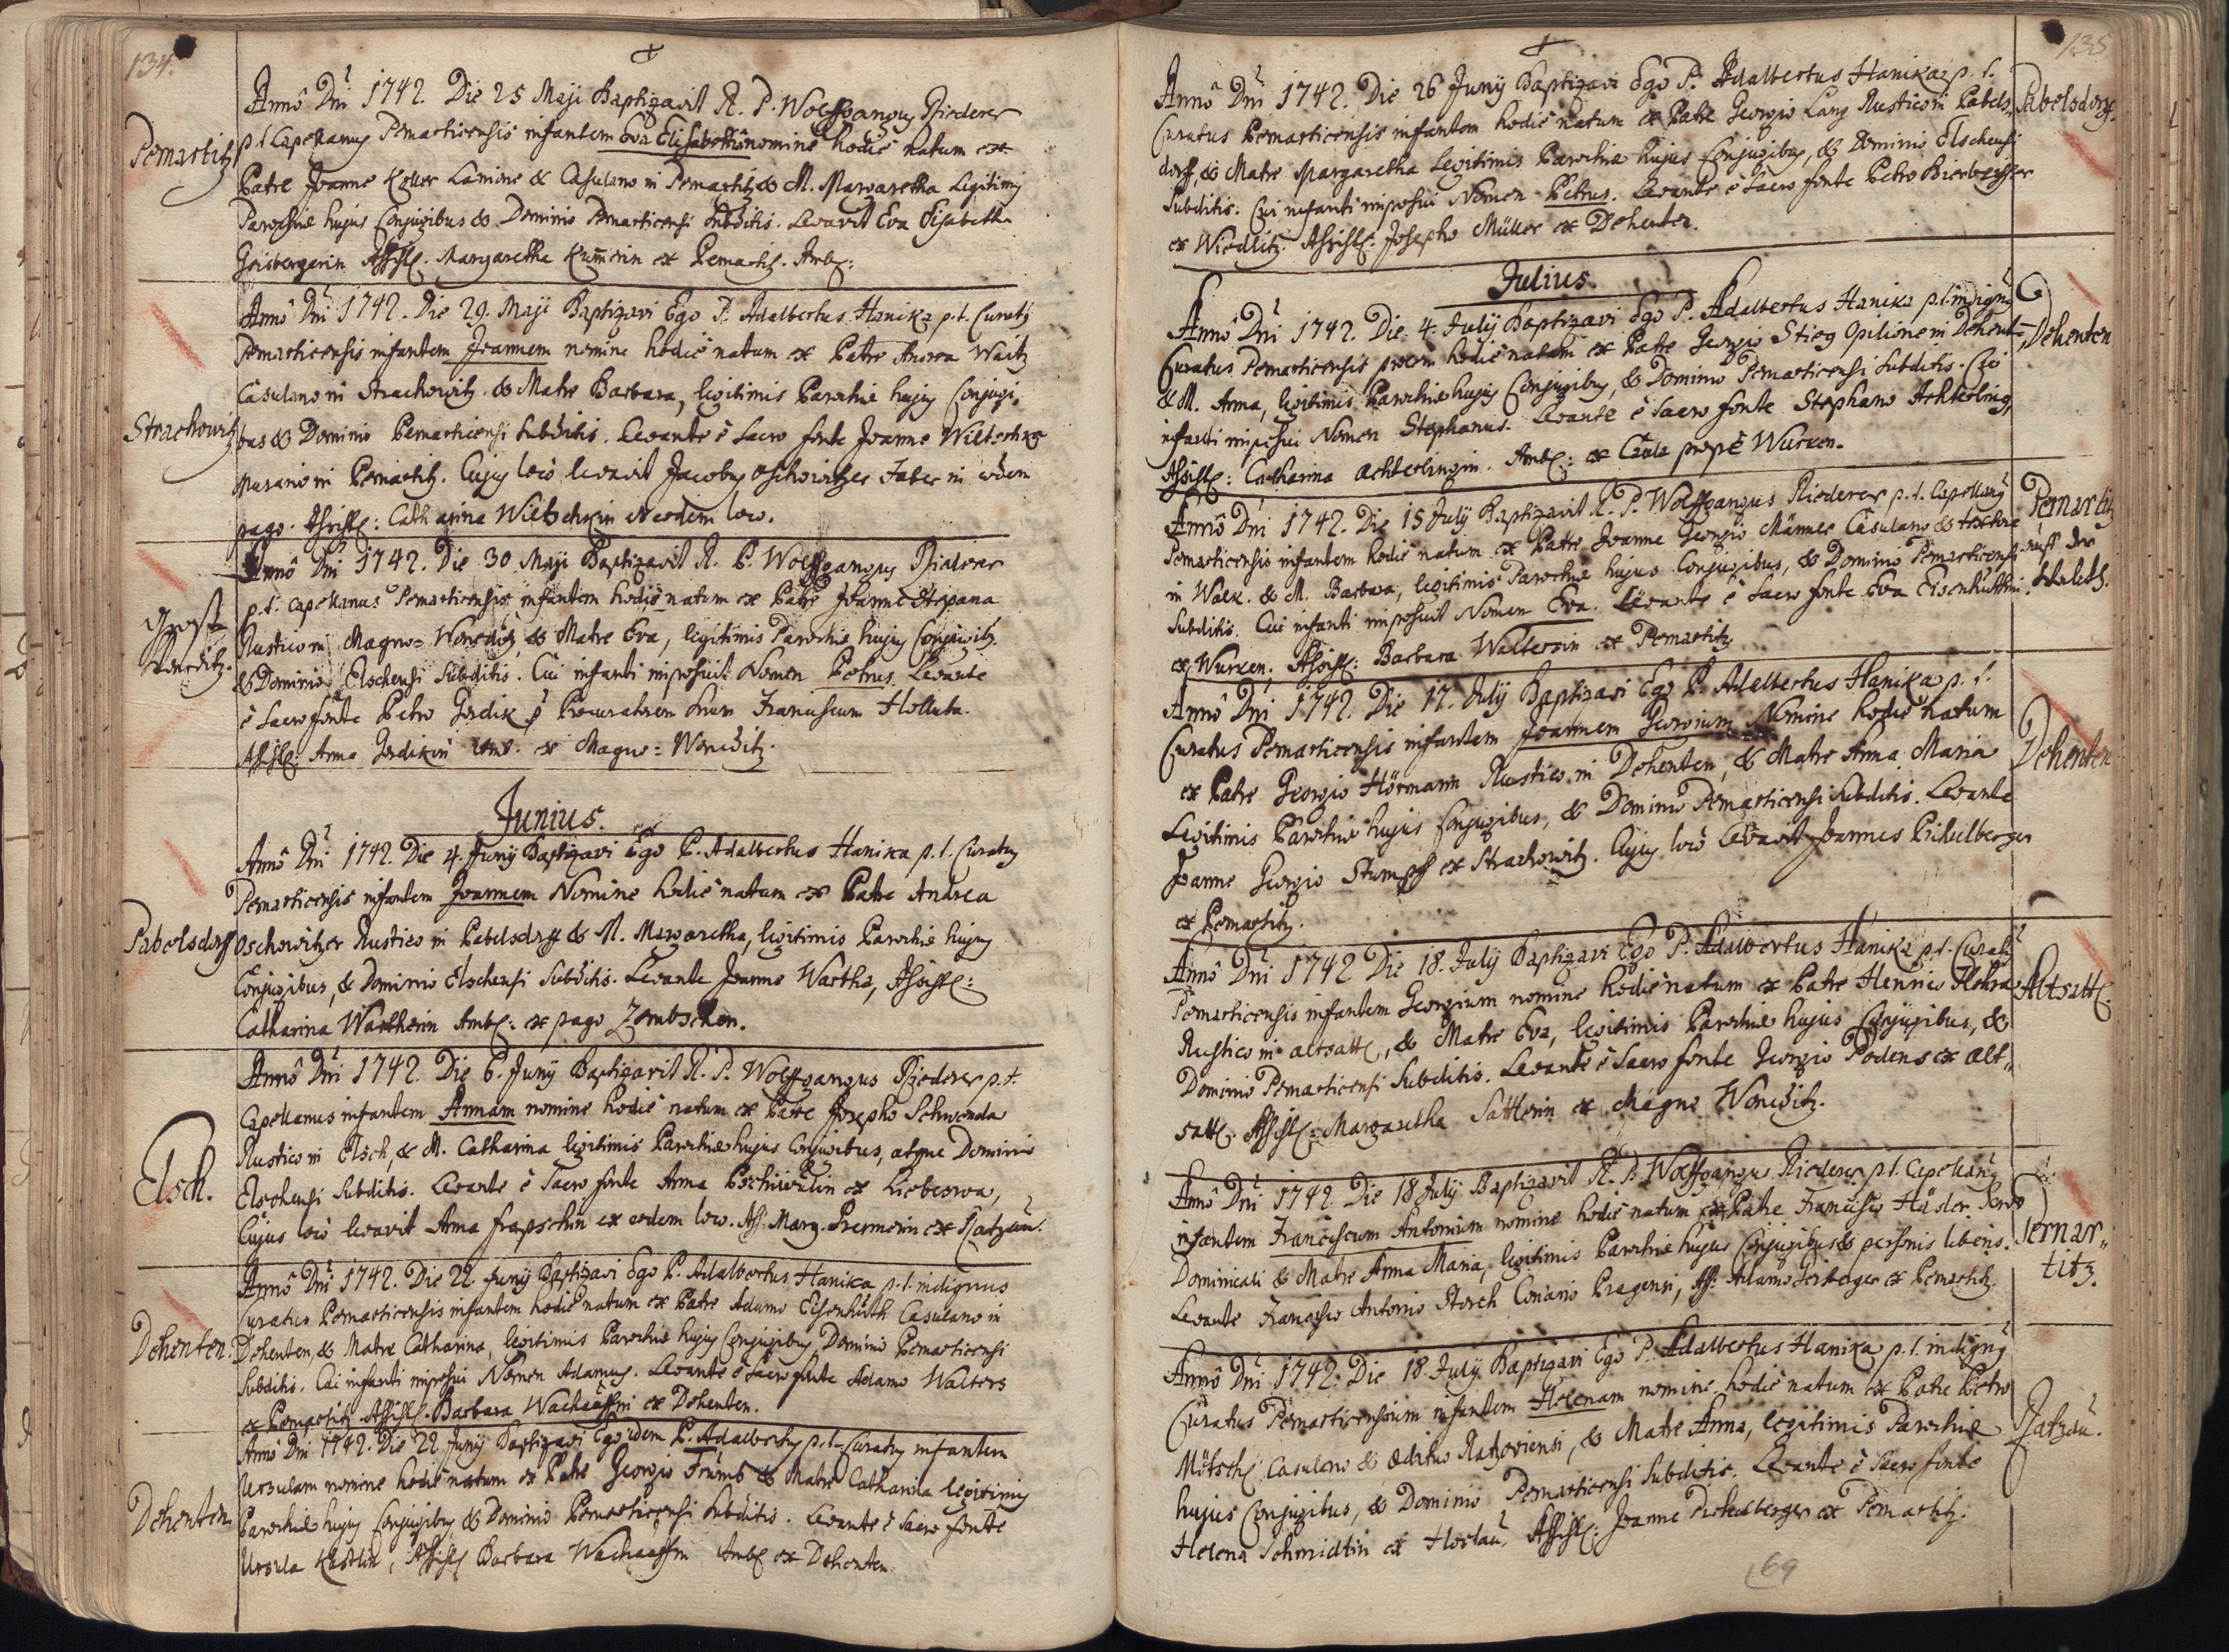 134.
Anno Dni 1742. Die 25 Maji Baptizavit R. P. Wolffgangus Riederer
Pernartitz p. t. Capellanus Pernarticensis infantem Eva Elisabetha nomine hodie natum ex
Patre Joanne Koller Lanione & Casulano in Pernartitz & M. Margaretha Legitimis
Parochiae hujus Conjugibus & Dominio Pernarticensi Subditis. Levavit Eva Elisabetha
Geisbergerin Assist. Margaretha Kumerin ex Pernartitz. Amb:
Anno Dni 1742. Die 29. Maji Baptizavi Ego P. Adalbertus Hanika p. t. Curatus
Pernarticensis infantem Joannem nomine hodie natum ex Patre Andrea Waitz
Casulano in Strachowitz. & Matre Barbara, legitimis Parochiae hujus Conjugi,
Strachowitz bus & Dominio Pernarticensi Subditis. Levante è Sacro fonte Joanne Wiltschko
Murario in Pernartitz. Cujus loco levavit Jacobus Oschowitzer Faber in eodem
pago. Assist: Catharina Wiltschkin in eodem loco.
Anno Dni 1742. Die 30. Maji Baptizavit R. P. Wolffgangus Riederer
p. t. Capellanus Pernarticensis infantem hodie natum ex Patre Joanne Stepana
Gross Woneditz. Rustico in Magno= Woneditz, & Matre Eva, legitimis Parochiae hujus Conjugib.
& Dominio Elschensi Subditis. Cui infanti imposuit Nomen Petrus. Levante
è Sacro fonte Petro Gerdik per Procuratorem suum Franciscum Holluba.
Assist: Anna Gerdikin Amb. ex Magno= Woneditz.
Junius.
Anno Dni 1742. Die 4. Juny Baptizavi Ego P. Adalbertus Hanika p. t. Curatus
Pernarticensis infantem Joannem Nomine hodie natum ex Patre Andrea
Pabelsdorff Oschowitzer Rustico in Pabelsdorff & M. Margaretha, legitimis Parochiae hujus
Conjugibus, & Dominio Elschensi Subditis. Levante Joanne Wartha, Assist:
Catharina Warthin Amb: ex pago Zembschen.
Anno Dni 1742. Die 6. Juny Baptizavit R. P. Wolffgangus Riederer p. t.
Capellanus infantem Annam nomine hodie natum ex Patre Josepho Schwenda
Elsch. Rustico in Elsch, & M. Catharina legitimis Parochiae hujus Conjugibus, atque Dominio
Elschensi Subditis. Levante è Sacro fonte Anna ex Lieboswa,
Cujus loco levavit Anna ex eodem loco. Ass: Marg. ex Ratzau.
Anno Dni 1742. Die 22 Juny Baptizavi Ego P. Adalbertus Hanika p. t. indignus
Curatus Pernarticensis infantem hodie natum ex Patre Adamo Eisenhuth Casulano in
Dehenten. Dehenten, & Matre Catharina, legitimis Parochiae hujus Conjugibus, Dominio Pernarticensi
Subditis. Cui infanti imposui Nomen Adamus. Levante è Sacro fonte Adamo Walters
ex Pernartitz. Assist. Barbara ex Dehenten.
Anno Dni 1742. Die 22 Juny Baptizavi Ego idem P. Adalbertus p. t. Curatus infantem
Ursulam nomine hodie natum ex Patre Georgio & Matre Catharina legitimis
Dehenten. Parochiae hujus Conjugibus, & Dominio Pernarticensi Subditis. Levante è Sacro fonte
Ursula, Assist: Barbara Amb: ex Dehenten.
135
Anno Dni 1742. Die 26 Juny Baptizavi Ego P. Adalbertus Hanika p. t.
Curatus Pernarticensis infantem hodie natum ex Patre Georgio Lang Rustico in Pabels= Pabelsdorf.
dorff, & Matre Margaretha Legitimis Parochiae hujus Conjugibus, & Dominio Elschensi
Subditis: Cui infanti imposui Nomen Petrus. Levante è Sacro fonte Petro
ex Wiedlitz. Assist: Josepho Müller ex Dehenten.
Julius.
Anno Dni 1742. Die 4. July Baptizavi Ego P. Adalbertus Hanika p. t. indignus
Curatus Pernarticensis prolem hodie natam ex Patre Georgio Stieg Opilione in Dehent= Dehenten
& M. Anna, legitimis Parochiae hujus Conjugibus, & Dominio Pernarticensi Subditis. Cui
infanti imposui Nomen Stephanus. Levante è Sacro fonte Stephano Achterling,
Assist: Catharina Achterlingin. Amb: ex Caula prope Wurken.
Anno Dni 1742. Die 15 July Baptizavit R. P. Wolffgangus Riederer p. t. Capellanus Pernartitz
Pernarticensis infantem hodie natum ex Patre Joanne Georgio Männer Casulano & textore auff der
in Walk. & M. Barbara, legitimis Parochiae hujus Conjugibus, & Dominio Pernarticensi
Subditis. Cui infanti imposuit Nomen Eva. Levante è Sacro fonte Eva Eisenhuttin
ex Wurken. Assist: Barbara Walterin ex Pernartitz
Anno Dni 1742. Die 17. July Baptizavi Ego P. Adalbertus Hanika p. t.
Curatus Pernarticensis infantem Joannem Georgium Nomine hodie natum
ex Patre Georgio Hörmann Rustico in Dehenten, & Matre Anna Maria Dehenten
Legitimis Parochiae hujus Conjugibus, & Dominio Pernarticensi Subditis. Levante
Joanne Georgio Stumpf ex Strachowitz. Cujus loco levavit Joannes Pichelberger
ex Pernartitz.
Anno Dni 1742 Die 18. July Baptizavi Ego P. Adalbertus Hanika p. t. Curatus
Pernarticensis infantem Georgium nomine hodie natum ex Patre Henrico Altsatt.
Rustico in Altsatt, & Matre Eva, legitimis Parochiae hujus Conjugibus, &
Dominio Pernarticensi Subditis. Levante è Sacro fonte Georgio Podens ex Alt=
satt. Assist: Margaretha Sattlerin ex Magno Woneditz.
Anno Dni 1742. Die 18 July Baptizavit R. P. Wolffgangus Riederer p. t. Capellanus
infantem Franciscum Antonium nomine hodie natum ex Patre Francisco Häsler
Dominicali & Matre Anna Maria, legitimis Parochiae hujus Conjugibus & personis liberis. Pernar=
Levante Francisco Antonio Storch Pragensi, Ass: Adamo Geisberger ex Pernartitz. titz.
Anno Dni 1742. Die 18. July Baptizavi Ego P. Adalbertus Hanika p. t. indignus
Curatus Pernarticensium infantem Helenam nomine hodie natum ex Patre Petro
Mötschl Casulano & Aedituo Ratzoviensi, & Matre Anna, legitimis Parochiae Ratzau.
hujus Conjugibus, & Dominio Pernarticensi Subditis. Levante è Sacro fonte
Helena Schmidtin ex Assist: Joanne Pichelberger ex Pernartitz.
69